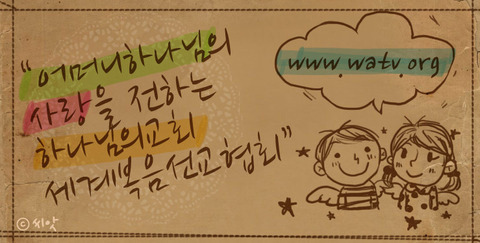 "어머니하나님의
사랑을 전하는
하나님의교회
세계복음선교협회"
www.watv.org
ⓒ 씨앗